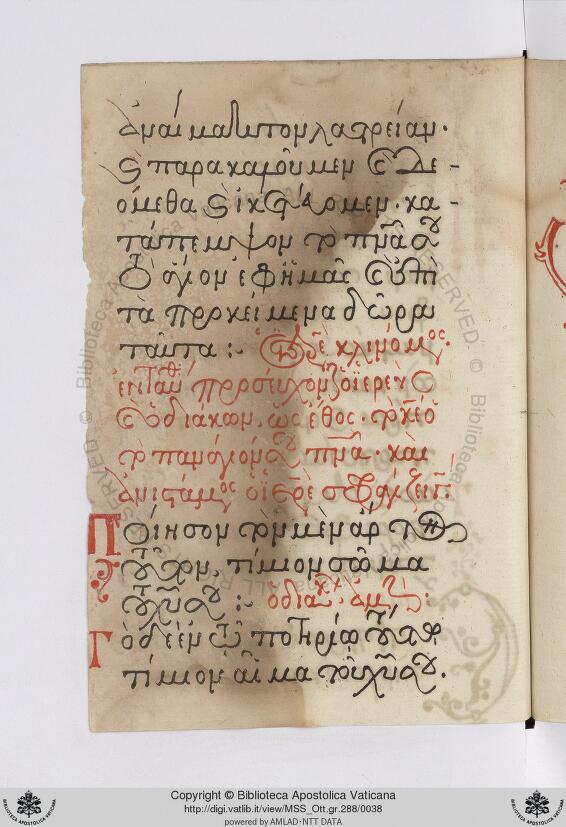 ἀναίμακτον λατρείαν·
ϗ παρακαλοῦμεν καὶ δε-
όμεθα ϗ ἱκετεύομεν· κα-
τάπεμψον τὸ πνᾶ σου
τὸ ἅγιον ἐφ' ἡμᾶς καὶ ἐπὶ
τὰ προκείμενα δῶρα
ταῦτα :-
καὶ ὁ διάκων, ὡς ἔθος·
τὸ πανάγιον πνᾶ· καὶ
ἀνιστάμενος ὁ ἱερεὺς σφραγίζει
Ποίησον τὸν μὲν ἄρτον
τοῦτον, τίμιον σῶμα
τοῦ χυ σου :- ὁ διακ. ἀμήν:
Τὸ δὲ ἐν τῷ ποτηρίῳ τούτῳ
τίμιον αἷμα τοῦ χυ σου.
Copyright © Biblioteca Apostolica Vaticana
http://digi.vatlib.it/view/MSS_Ott.gr.288/0038
powered by AMLAD-NTT DATA